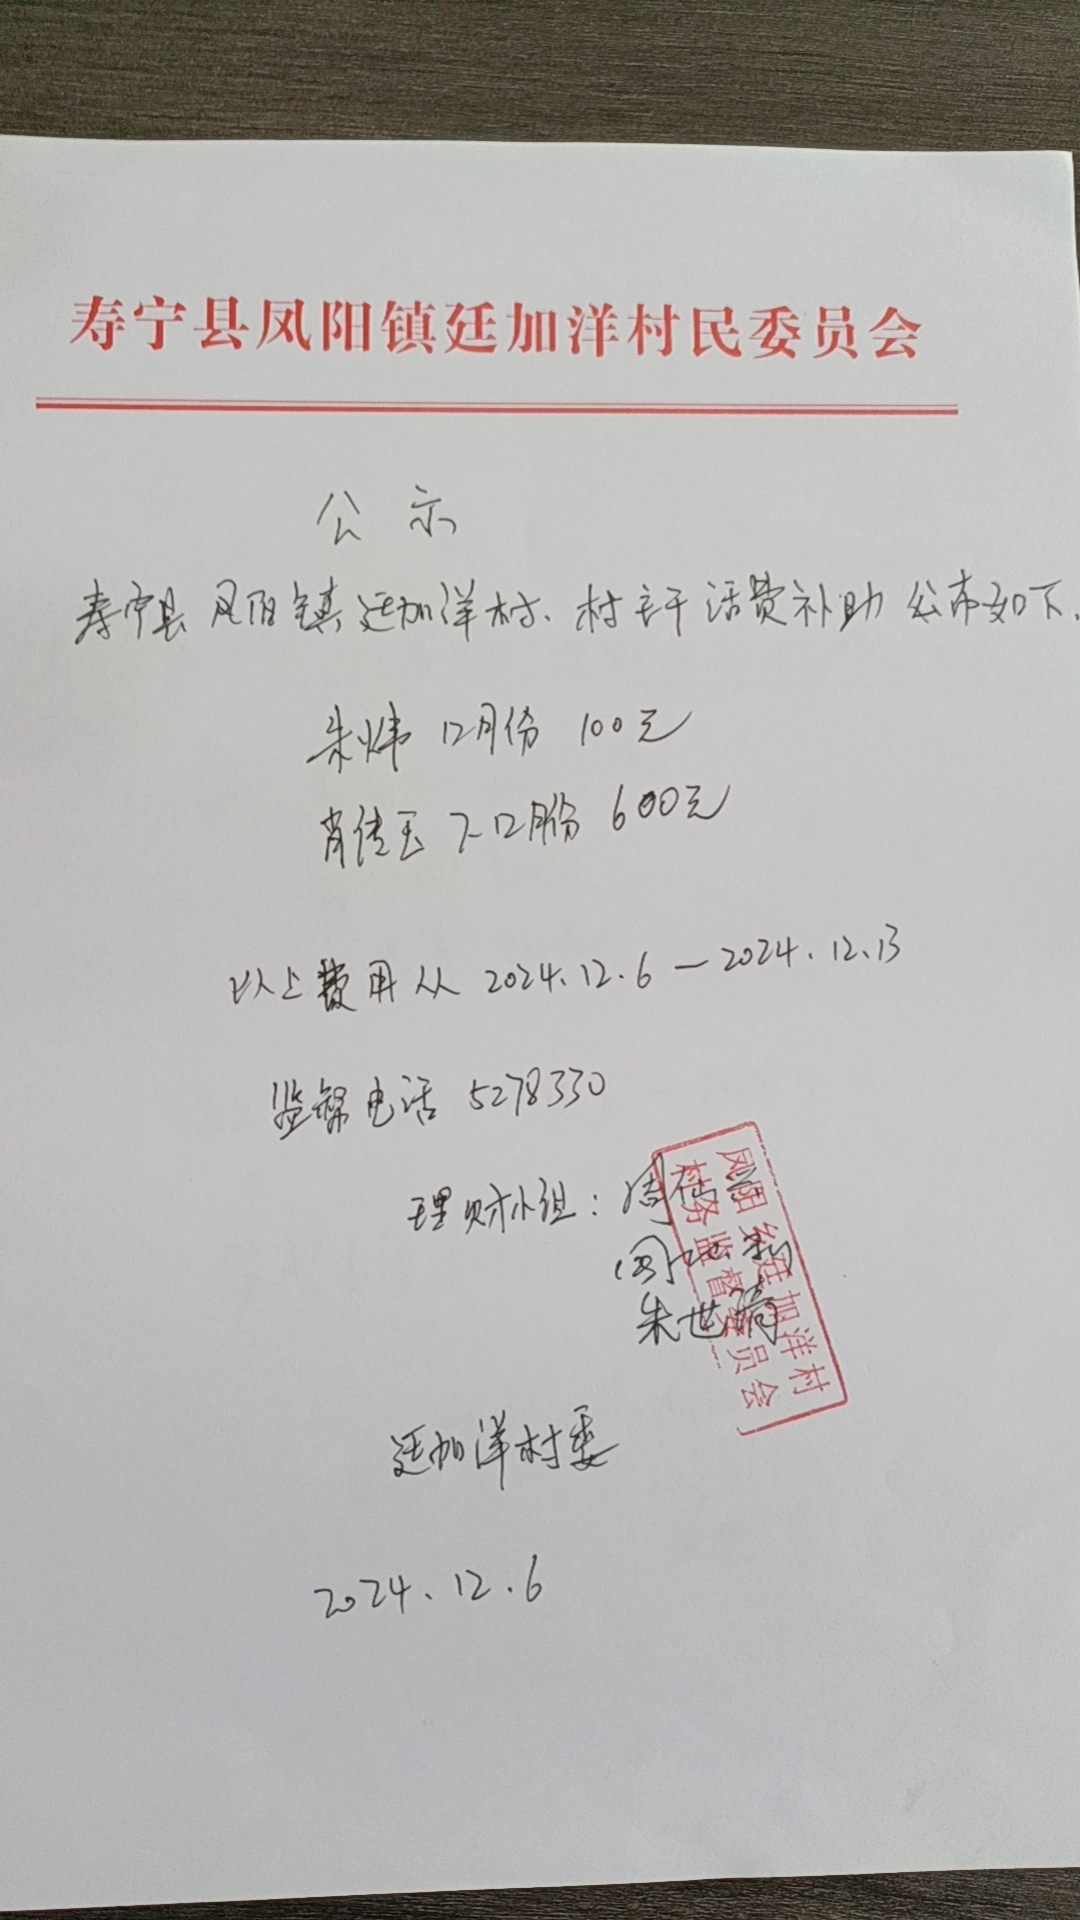 寿宁县凤阳镇廷加洋村民委员会
公示
寿宁县凤阳镇廷加洋村、村主干话费补助公布如下、
朱炜 12月份 100元
肖传玉 7-12月份 600元
以上费用从 2024.12.6—2024.12.13
监督电话 5278330
理财小组：周
朱世
凤阳乡廷加洋村
村务监督委员会
廷加洋村委
2024.12.6